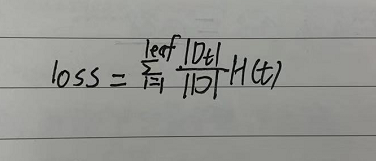 loss = \sum_{i=1}^{leaf} \frac{|D_t|}{|D|} H(t)